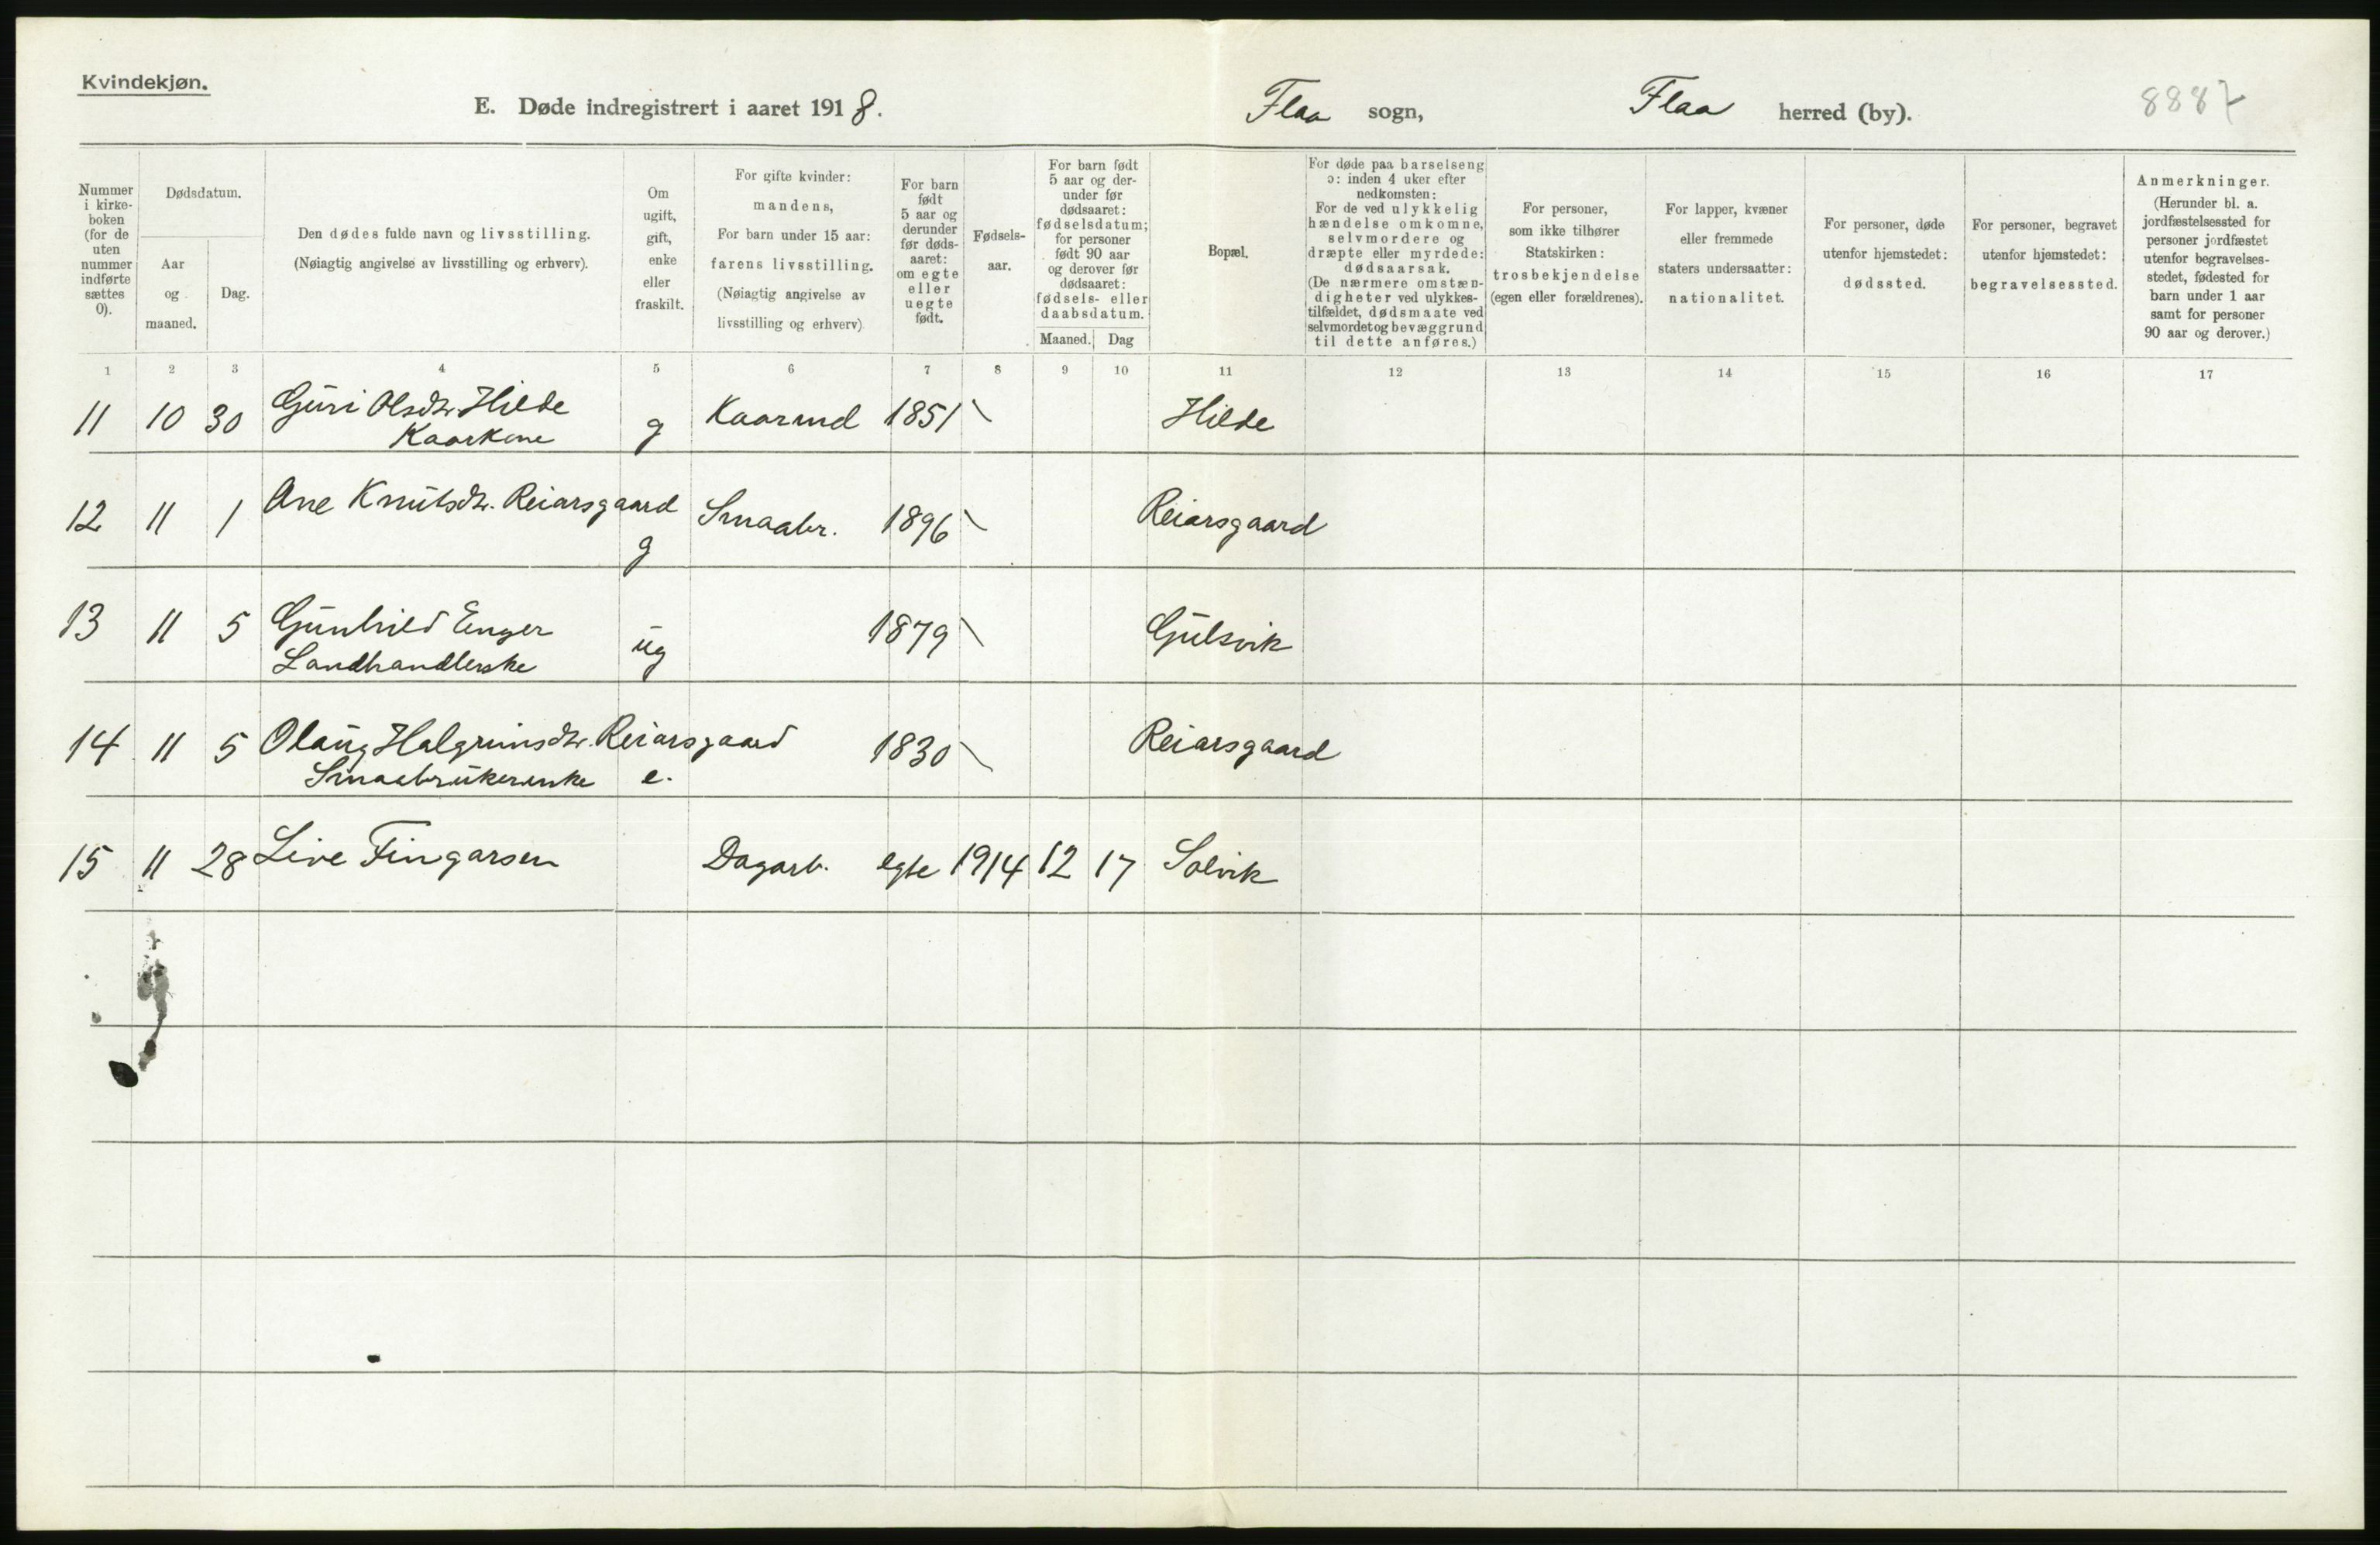 Kvindekjøn.
E. Døde indregistrert i aaret 1918.
Flaa sogn, Flaa herred (by).
8887
Nummer i kirke-boken (for de uten nummer indførte sættes 0).
Dødsdatum.
Aar og maaned.
Dag.
Den dødes fulde navn og livsstilling.
(Nøiagtig angivelse av livsstilling og erhverv).
Om ugift, gift, enke eller fraskilt.
For gifte kvinder:
mandens,
For barn under 15 aar:
farens livsstilling.
(Nøiagtig angivelse av
livsstilling og erhverv)
For barn født 5 aar og derunder før døds-aaret: om egte eller uegte født.
Fødsels-aar.
For barn født 5 aar og der-under før dødsaaret: fødselsdatum; for personer født 90 aar og derover før dødsaaret: fødsels- eller daabsdatum.
Maaned. Dag
Bopæl.
For døde paa barselseng
ɔ: inden 4 uker efter
nedkomsten:
For de ved ulykkelig
hændelse omkomne,
selvmordere og
dræpte eller myrdede:
dødsaarsak.
(De nærmere omstæn-
digheter ved ulykkes-
tilfældet, dødsmaate ved
selvmordet og bevæggrund
til dette anføres.)
For personer,
som ikke tilhører
Statskirken:
trosbekjendelse
(egen eller forældrenes).
For lapper, kvæner
eller fremmede
staters undersaatter:
nationalitet.
For personer, døde
utenfor hjemstedet:
dødssted.
For personer, begravet
utenfor hjemstedet:
begravelsessted.
Anmerkninger.
(Herunder bl. a.
jordfæstelsessted for
personer jordfæstet
utenfor begravelses-
stedet, fødested for
barn under 1 aar
samt for personer
90 aar og derover.)
1 2 3 4 5 6 7 8 9 10 11 12 13 14 15 16 17
11 10 30 Guri Olsdtr. Hilde g Kaarmd 1851 Hilde
Kaarkone
12 11 1 Ane Knutsdtr. Reiarsgaard g Smaabr. 1896 Reiarsgaard
13 11 5 Gunhild Enger ug 1879 Gulsvik
Landhandlerske
14 11 5 Olaug Halgrimsdtr. Reiarsgaard 1830 Reiarsgaard
Smaabrukerenke e.
15 11 28 Live Fingarsen Dagarb. egte 1914 12 17 Solvik